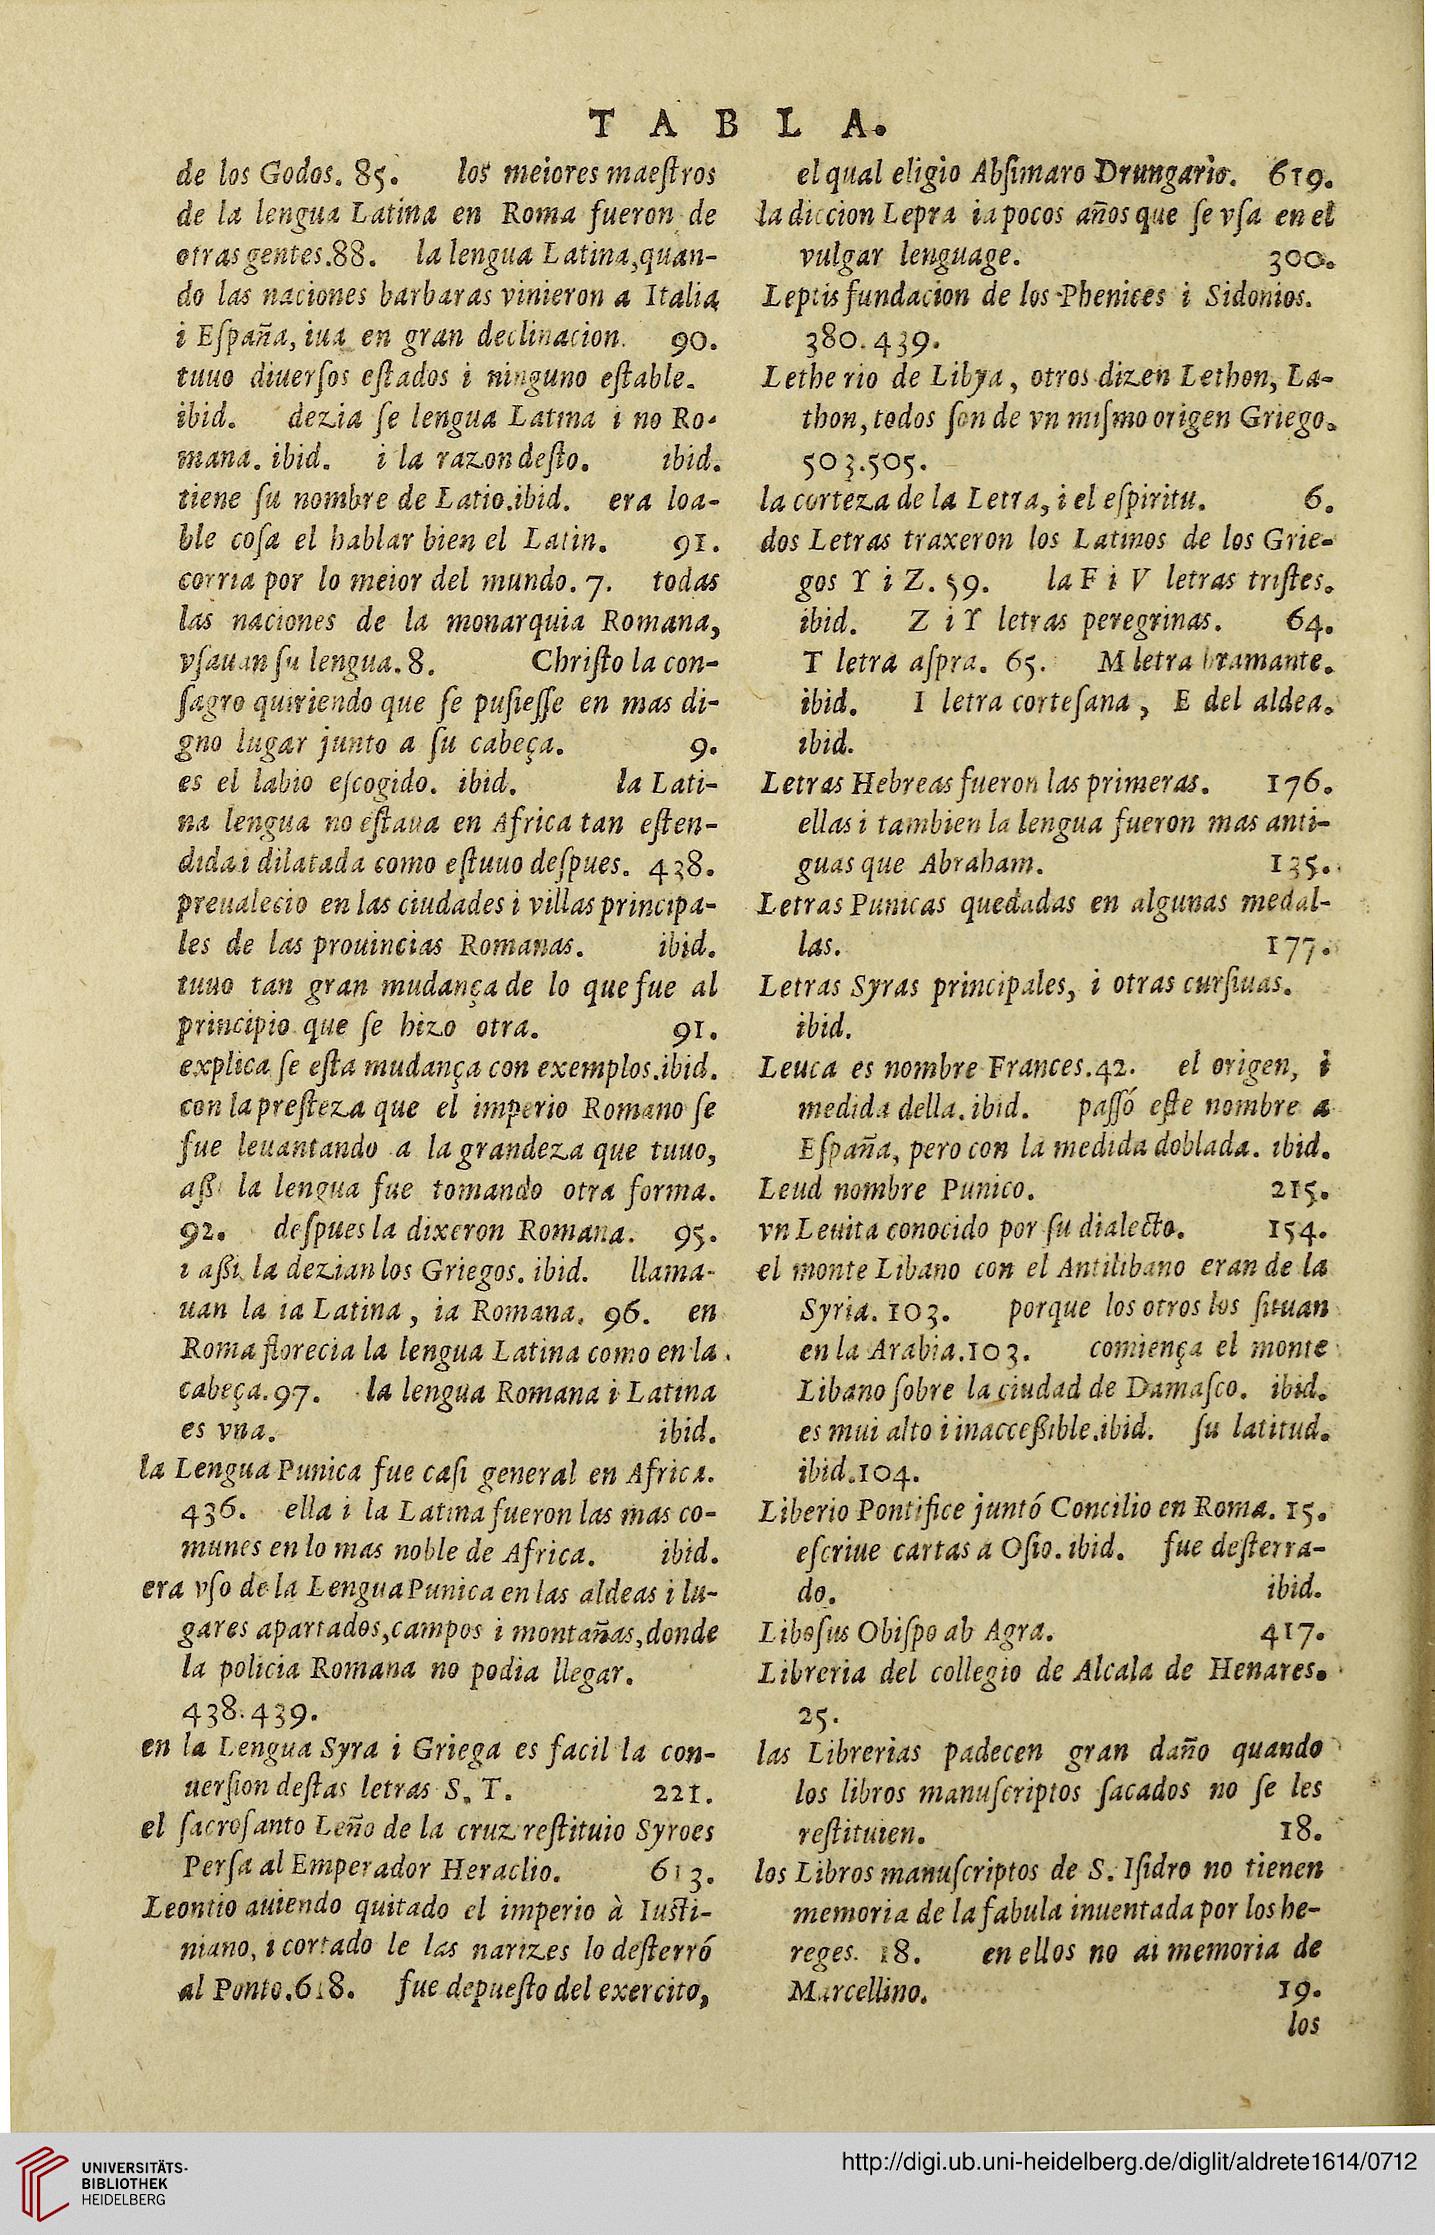 TABLA.
de los Godos. 85. los meiores maeſtros
de la lengua Latina en Roma fueron de
otras gentes.88. la lengua Latina,quan-
do las naciones barbaras vinieron a Italia
i Eſpaña, iua en gran declinacion. 90.
tuuo diuerſos eſtados i ninguno eſtable.
ibid. dezia ſe lengua Latina i no Ro-
mana. ibid. i la razon deſto. ibid.
tiene ſu nombre de Latio.ibid. era loa-
ble coſa el hablar bien el Latin. 91.
corria por lo meior del mundo. 7. todas
las naciones de la monarquia Romana,
vſauan ſu lengua. 8. Chriſto la con-
ſagro quiriendo que ſe puſieſſe en mas di-
gno lugar junto a ſu cabeça. 9.
es el labio eſcogido. ibid. la Lati-
na lengua no eſtaua en Africa tan eſten-
dida i dilatada como eſtuuo deſpues. 438.
preualecio en las ciudades i villas principa-
les de las prouincias Romanas. ibid.
tuuo tan gran mudança de lo que fue al
principio que ſe hizo otra. 91.
explica ſe eſta mudança con exemplos.ibid.
con la preſteza que el imperio Romano ſe
fue leuantando a la grandeza que tuuo,
aßi la lengua fue tomando otra forma.
92. deſpues la dixeron Romana. 95.
i aßi la dezian los Griegos. ibid. llama-
uan la ia Latina, ia Romana. 96. en
Roma florecia la lengua Latina como en la
cabeça. 97. la lengua Romana i Latina
es vna. ibid.
la Lengua Punica fue caſi general en Africa.
436. ella i la Latina fueron las mas co-
munes en lo mas noble de Africa. ibid.
era vſo de la Lengua Punica en las aldeas i lu-
gares apartados,campos i montañas,donde
la policia Romana no podia llegar.
438.439.
en la Lengua Syra i Griega es facil la con-
uerſion deſtas letras S, T. 221.
el ſacroſanto Leño de la cruz reſtituio Syroes
Perſa al Emperador Heraclio. 613.
Leontio auiendo quitado el imperio à Iuſti-
niano, i cortado le las narizes lo deſterró
al Ponto.618. fue depueſto del exercito,
el qual eligio Abſimaro Drungario. 619.
la diccion Lepra ia pocos años que ſe vſa en el
vulgar lenguage. 300.
Leptis fundacion de los Phenices i Sidonios.
380.439.
Lethe rio de Libya, otros dizen Lethon, La-
thon, todos ſon de vn miſmo origen Griego.
503.505.
la corteza de la Letra, i el eſpiritu. 6.
dos Letras traxeron los Latinos de los Grie-
gos Y i Z. 59. la F i V letras triſtes.
ibid. Z i Y letras peregrinas. 64.
T letra aſpra. 65. M letra bramante.
ibid. I letra corteſana, E del aldea.
ibid.
Letras Hebreas fueron las primeras. 176.
ellas i tambien la lengua fueron mas anti-
guas que Abraham. 135.
Letras Punicas quedadas en algunas medal-
las. 177.
Letras Syras principales, i otras curſiuas.
ibid.
Leuca es nombre Frances.42. el origen, i
medida della. ibid. paſſó eſte nombre a
Eſpaña, pero con la medida doblada. ibid.
Leud nombre Punico. 215.
vn Leuita conocido por ſu dialecto. 154.
el monte Libano con el Antilibano eran de la
Syria. 103. porque los otros los ſituan
en la Arabia.103. comiença el monte
Libano ſobre la ciudad de Damaſco. ibid.
es mui alto i inacceßible.ibid. ſu latitud.
ibid.104.
Liberio Pontifice juntó Concilio en Roma. 15.
eſcriue cartas a Oſio. ibid. fue deſterra-
do. ibid.
Liboſus Obiſpo ab Agra. 417.
Libreria del collegio de Alcala de Henares.
25.
las Librerias padecen gran daño quando
los libros manuſcriptos ſacados no ſe les
reſtituien. 18.
los Libros manuſcriptos de S. Iſidro no tienen
memoria de la fabula inuentada por los he-
reges. 18. en ellos no ai memoria de
Marcellino. 19.
los
UNIVERSITÄTS-
BIBLIOTHEK
HEIDELBERG
http://digi.ub.uni-heidelberg.de/diglit/aldrete1614/0712